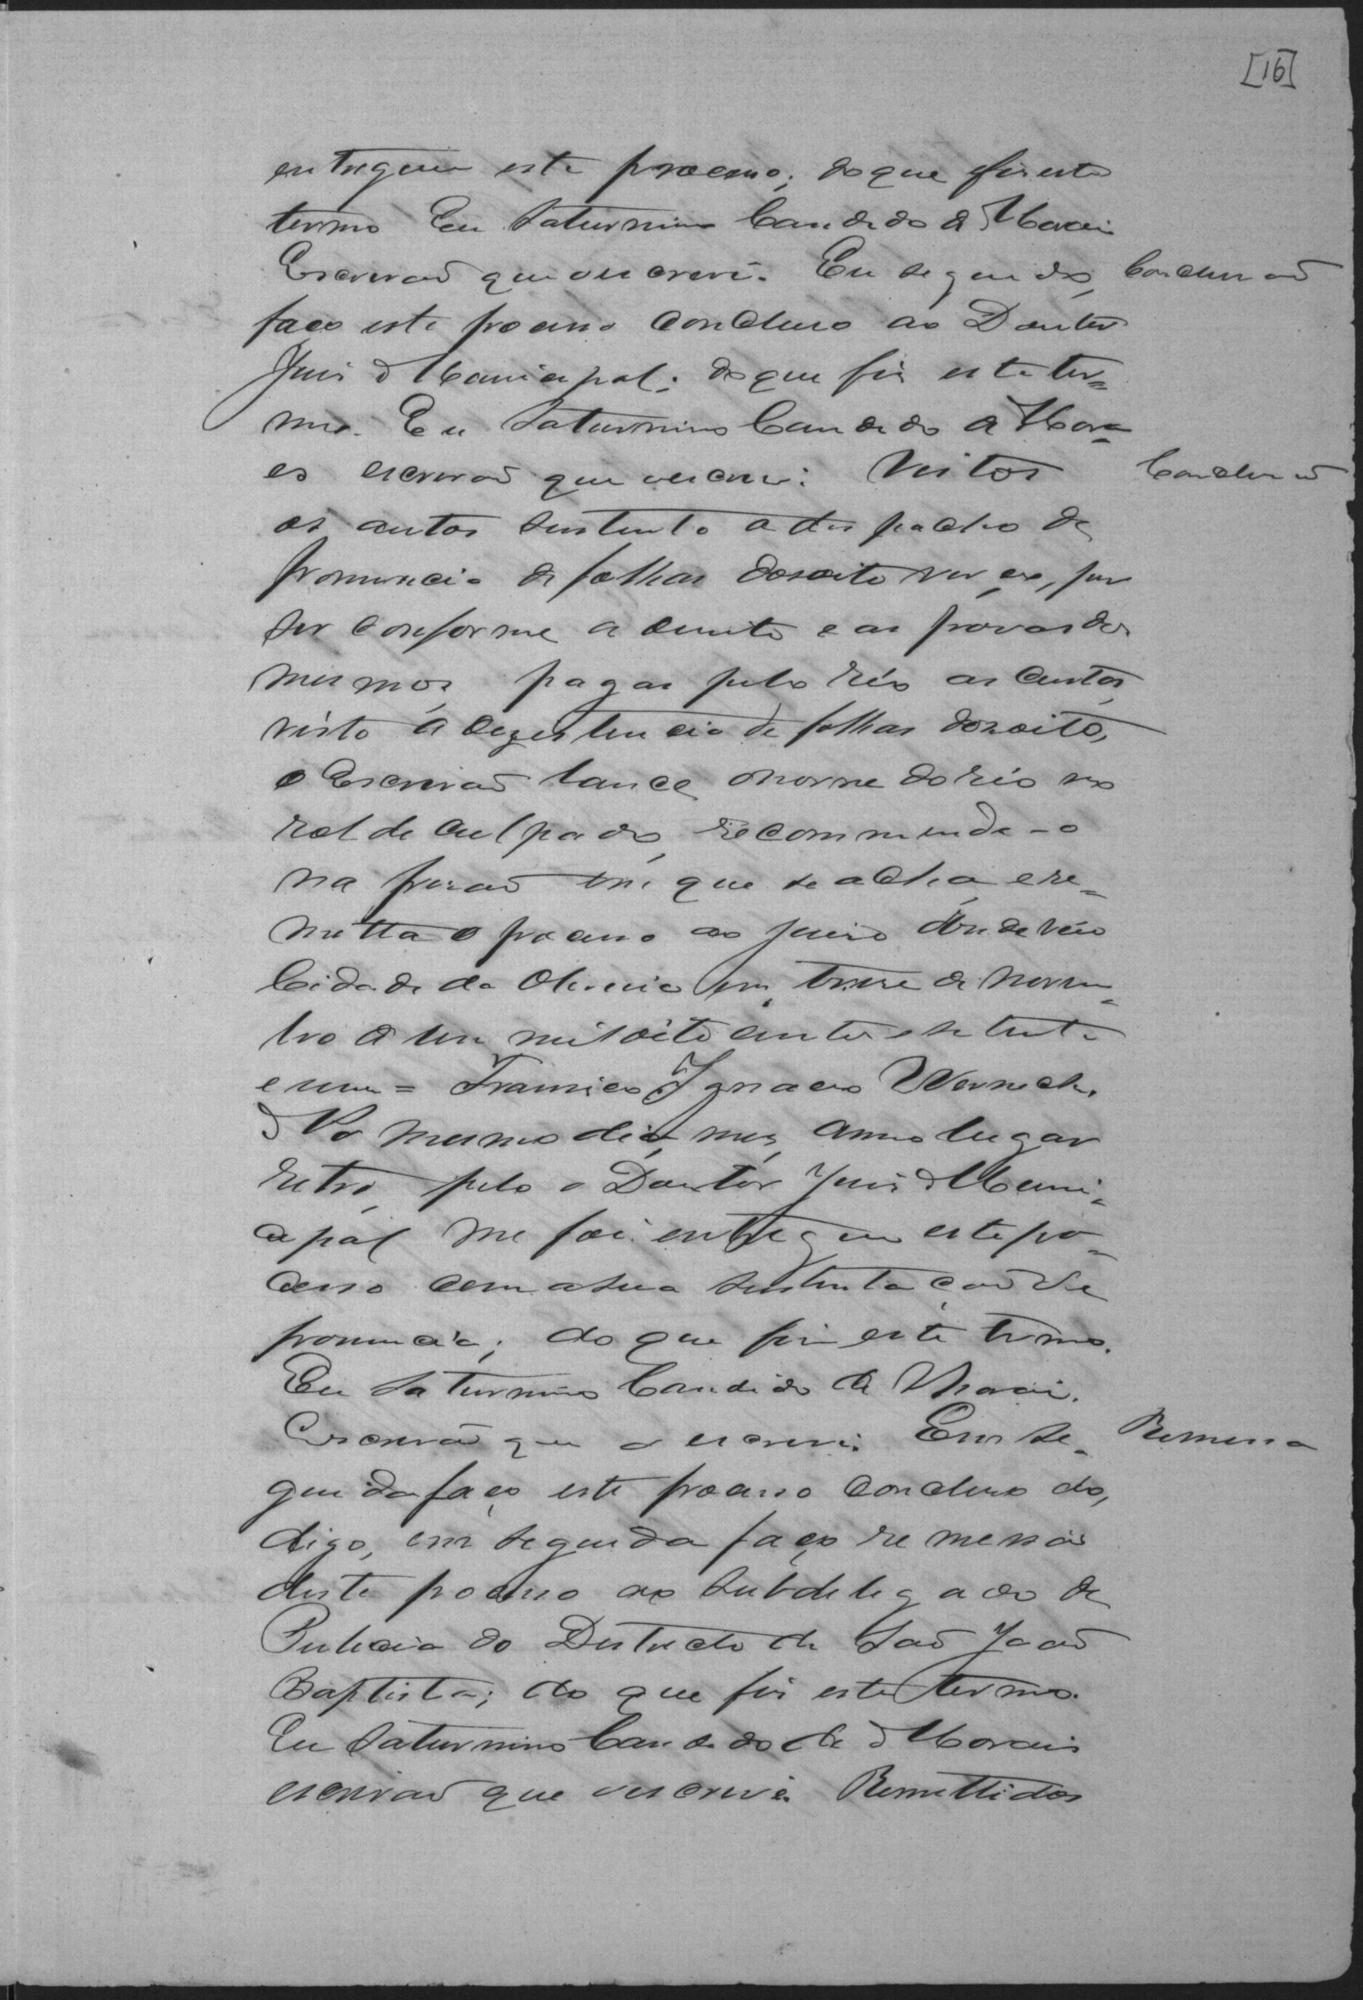 [16]
entregue este processo; do que fis este
termo Eu Saturnino Candido de Moraes
Escrivaõ que o escrevi. Em seguida, Concluzaõ
faço este processo concluso ao Doutor
Juis Municipal; do que fis este ter=
mo. Eu Saturnino Candido de Mora=
es escrivaõ que o escrevi: Vistos Concluzaõ
os autos sustento o despacho de
pronuncia de folhas desoito verço, por
ser conforme a direito e as provas dos
mesmos, pagas pelo réo as custas,
visto a dezistencia de folhas dozoito,
o Escrivaõ lance o nome do réo no
rol de culpados, recommende-o
na prizaõ em que se acha, e re=
metta o processo ao juizo donde veio
Cidade da em treze de novem=
bro de um mil oito centos e setenta
e um = Francisco Ignacio Werneck.
No mesmo dia, mes, anno lugar
retro, pelo o Doutor Juis Muni=
cipal me foi entregue este pro=
cesso com a sua sustentaçaõ de
pronuncia; do que fis este termo.
Eu Saturnino Candido de Moraes
Escrivaõ que o escrevi. Em se= Remessa
guida faço este processo concluso do,
digo, em seguida faço remessa
deste processo ao Subdelegado de
Policia do Districto de Saõ Joaõ
Baptista; do que fis este termo.
Eu Saturnino Candido de Moraes
escrivaõ que o escrevi. Remettidos